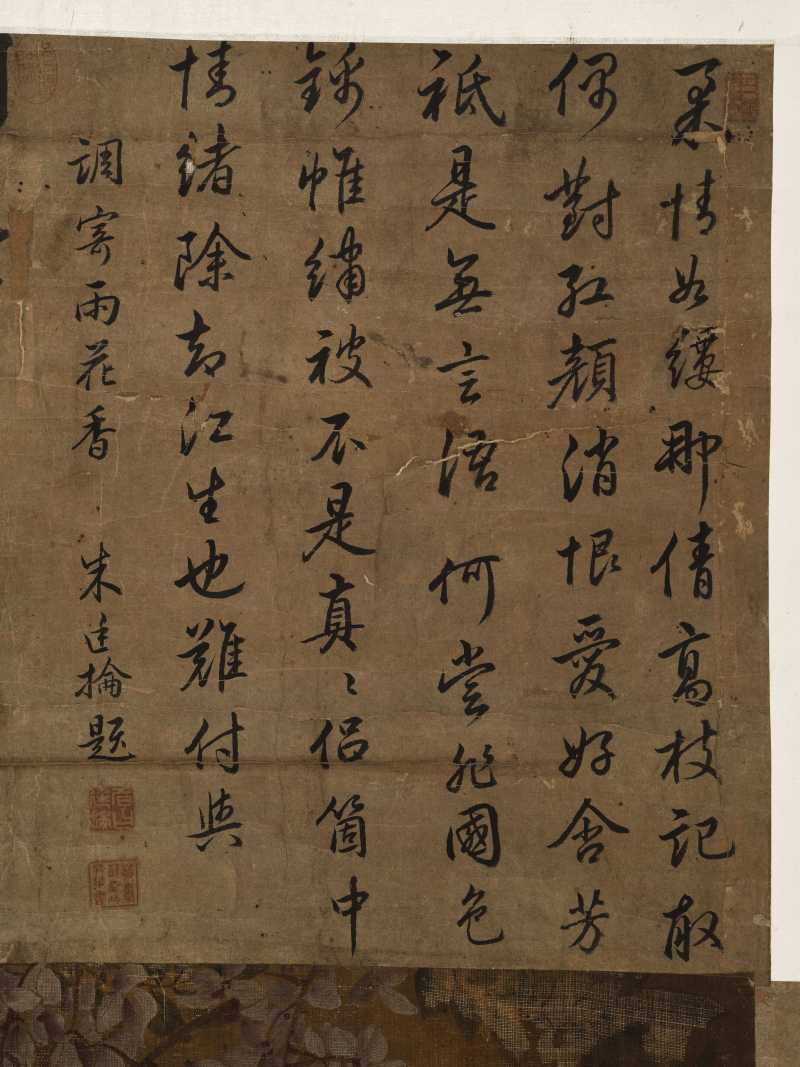 柔情如縷那倩高枝記取
偶對紅顏消恨愛好含芳
祗是無言語何嘗非國色
錦帷繡被不是真〻侶箇中
情緒除却江生也難付與
調寄雨花香 朱廷掄題